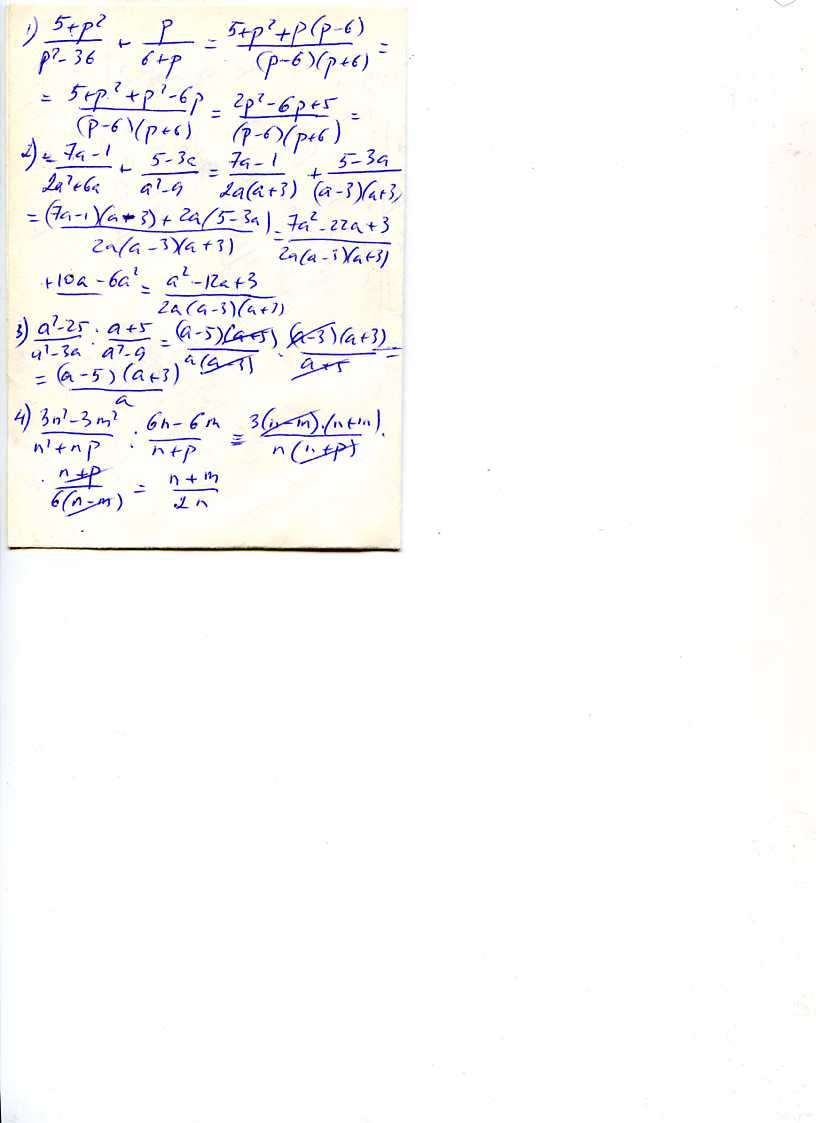 1) (5+p²)/(p²-36) + p/(6+p) = (5+p²+p(p-6))/((p-6)(p+6)) =
= (5+p²+p²-6p)/((p-6)(p+6)) = (2p²-6p+5)/((p-6)(p+6)) =
2) = (7a-1)/(2a²+6a) + (5-3a)/(a²-9) = (7a-1)/(2a(a+3)) + (5-3a)/((a-3)(a+3)
= ((7a-1)(a-3)+2a(5-3a))/(2a(a-3)(a+3)) = (7a²-22a+3)/(2a(a-3)(a+3))
+10a-6a² = (a²-12a+3)/(2a(a-3)(a+3))
3) (a²-25)/(a²-3a) : (a+5)/(a²-9) = ((a-5)(a+5))/(a(a-3)) · ((a-3)(a+3))/(a+5) =
= ((a-5)(a+3))/a
4) (3n²-3m²)/(n²+np) : (6n-6m)/(n+p) = (3(n-m)·(n+m))/(n(n+p)) ·
· (n+p)/(6(n-m)) = (n+m)/(2n)